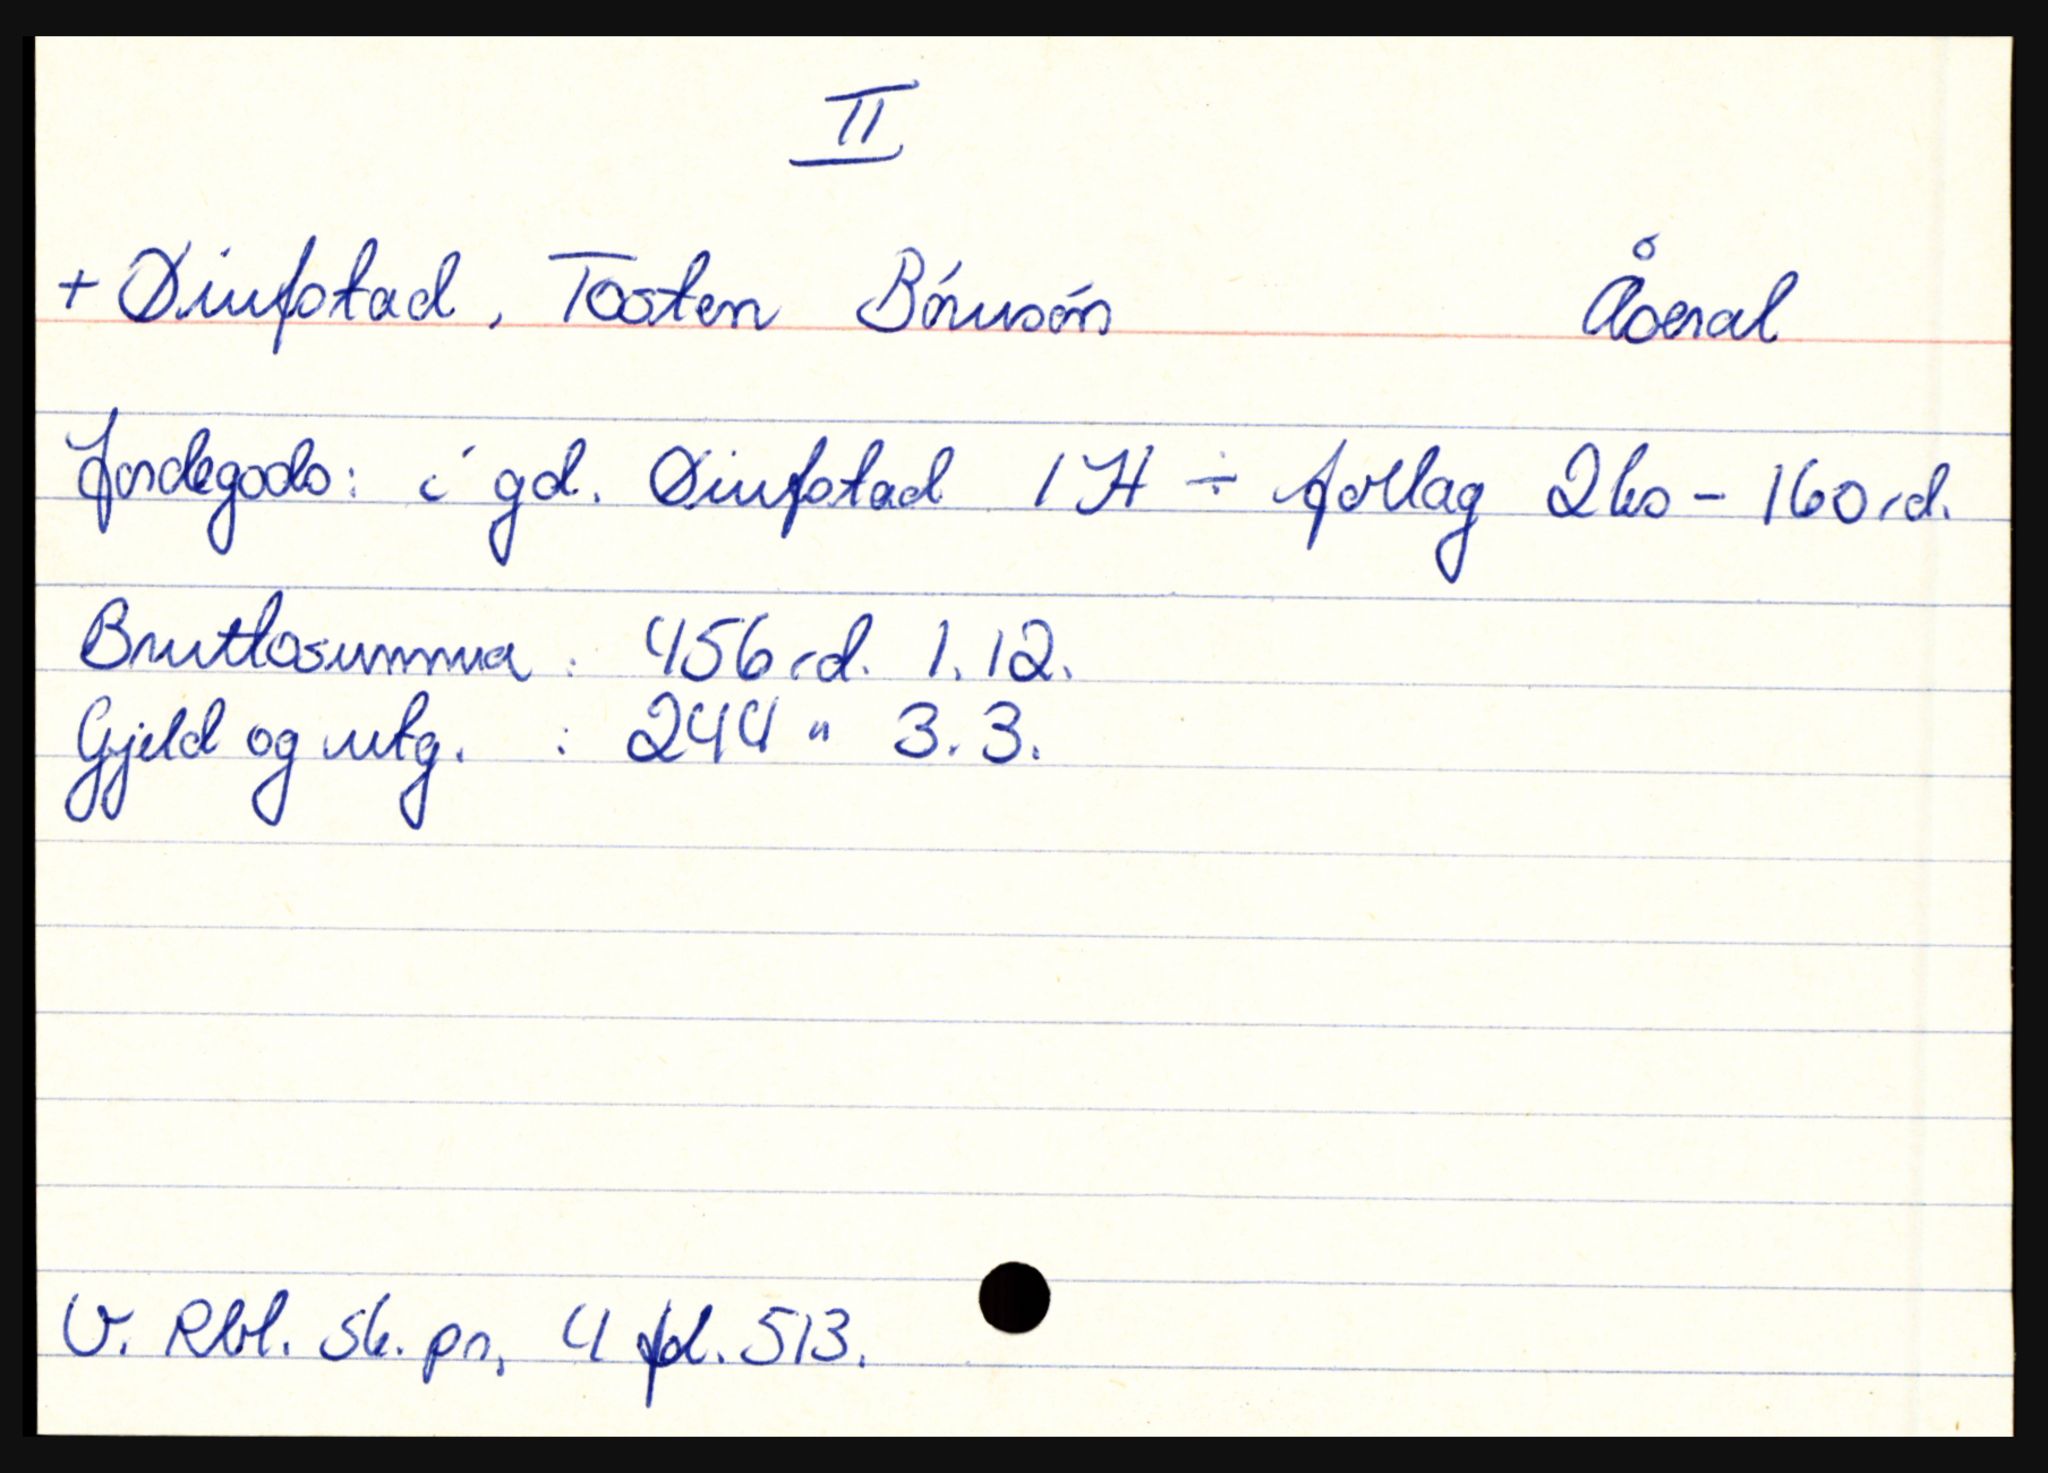 II
+ Øinfstad, Tosten Børusøn Åseral
Jordegods: i gd. Øinfstad 1 H ÷ follag 2 ks - 160 rd.
Bruttosumma : 456 rd. 1. 12.
Gjeld og utg. : 244 " 3. 3.
V. Rbl. sk. pr. 4 fol. 513.